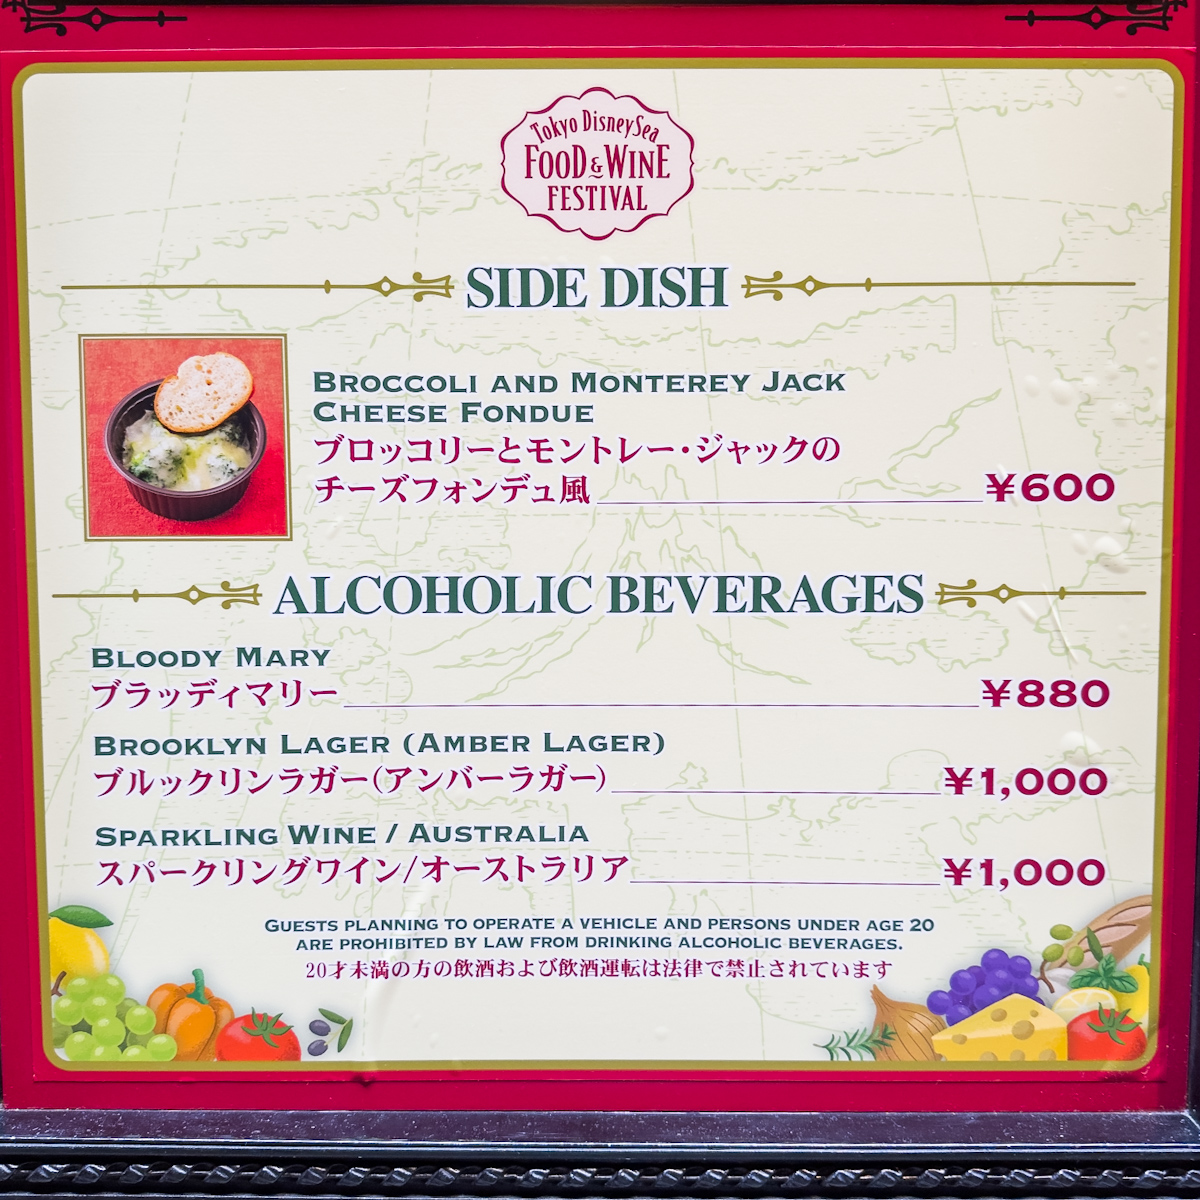 Tokyo DisneySea
FOOD & WINE
FESTIVAL
SIDE DISH
BROCCOLI AND MONTEREY JACK
CHEESE FONDUE
ブロッコリーとモントレー・ジャックの
チーズフォンデュ風 ¥600
ALCOHOLIC BEVERAGES
BLOODY MARY
ブラッディマリー ¥880
BROOKLYN LAGER (AMBER LAGER)
ブルックリンラガー(アンバーラガー) ¥1,000
SPARKLING WINE / AUSTRALIA
スパークリングワイン/オーストラリア ¥1,000
GUESTS PLANNING TO OPERATE A VEHICLE AND PERSONS UNDER AGE 20
ARE PROHIBITED BY LAW FROM DRINKING ALCOHOLIC BEVERAGES.
20才未満の方の飲酒および飲酒運転は法律で禁止されています